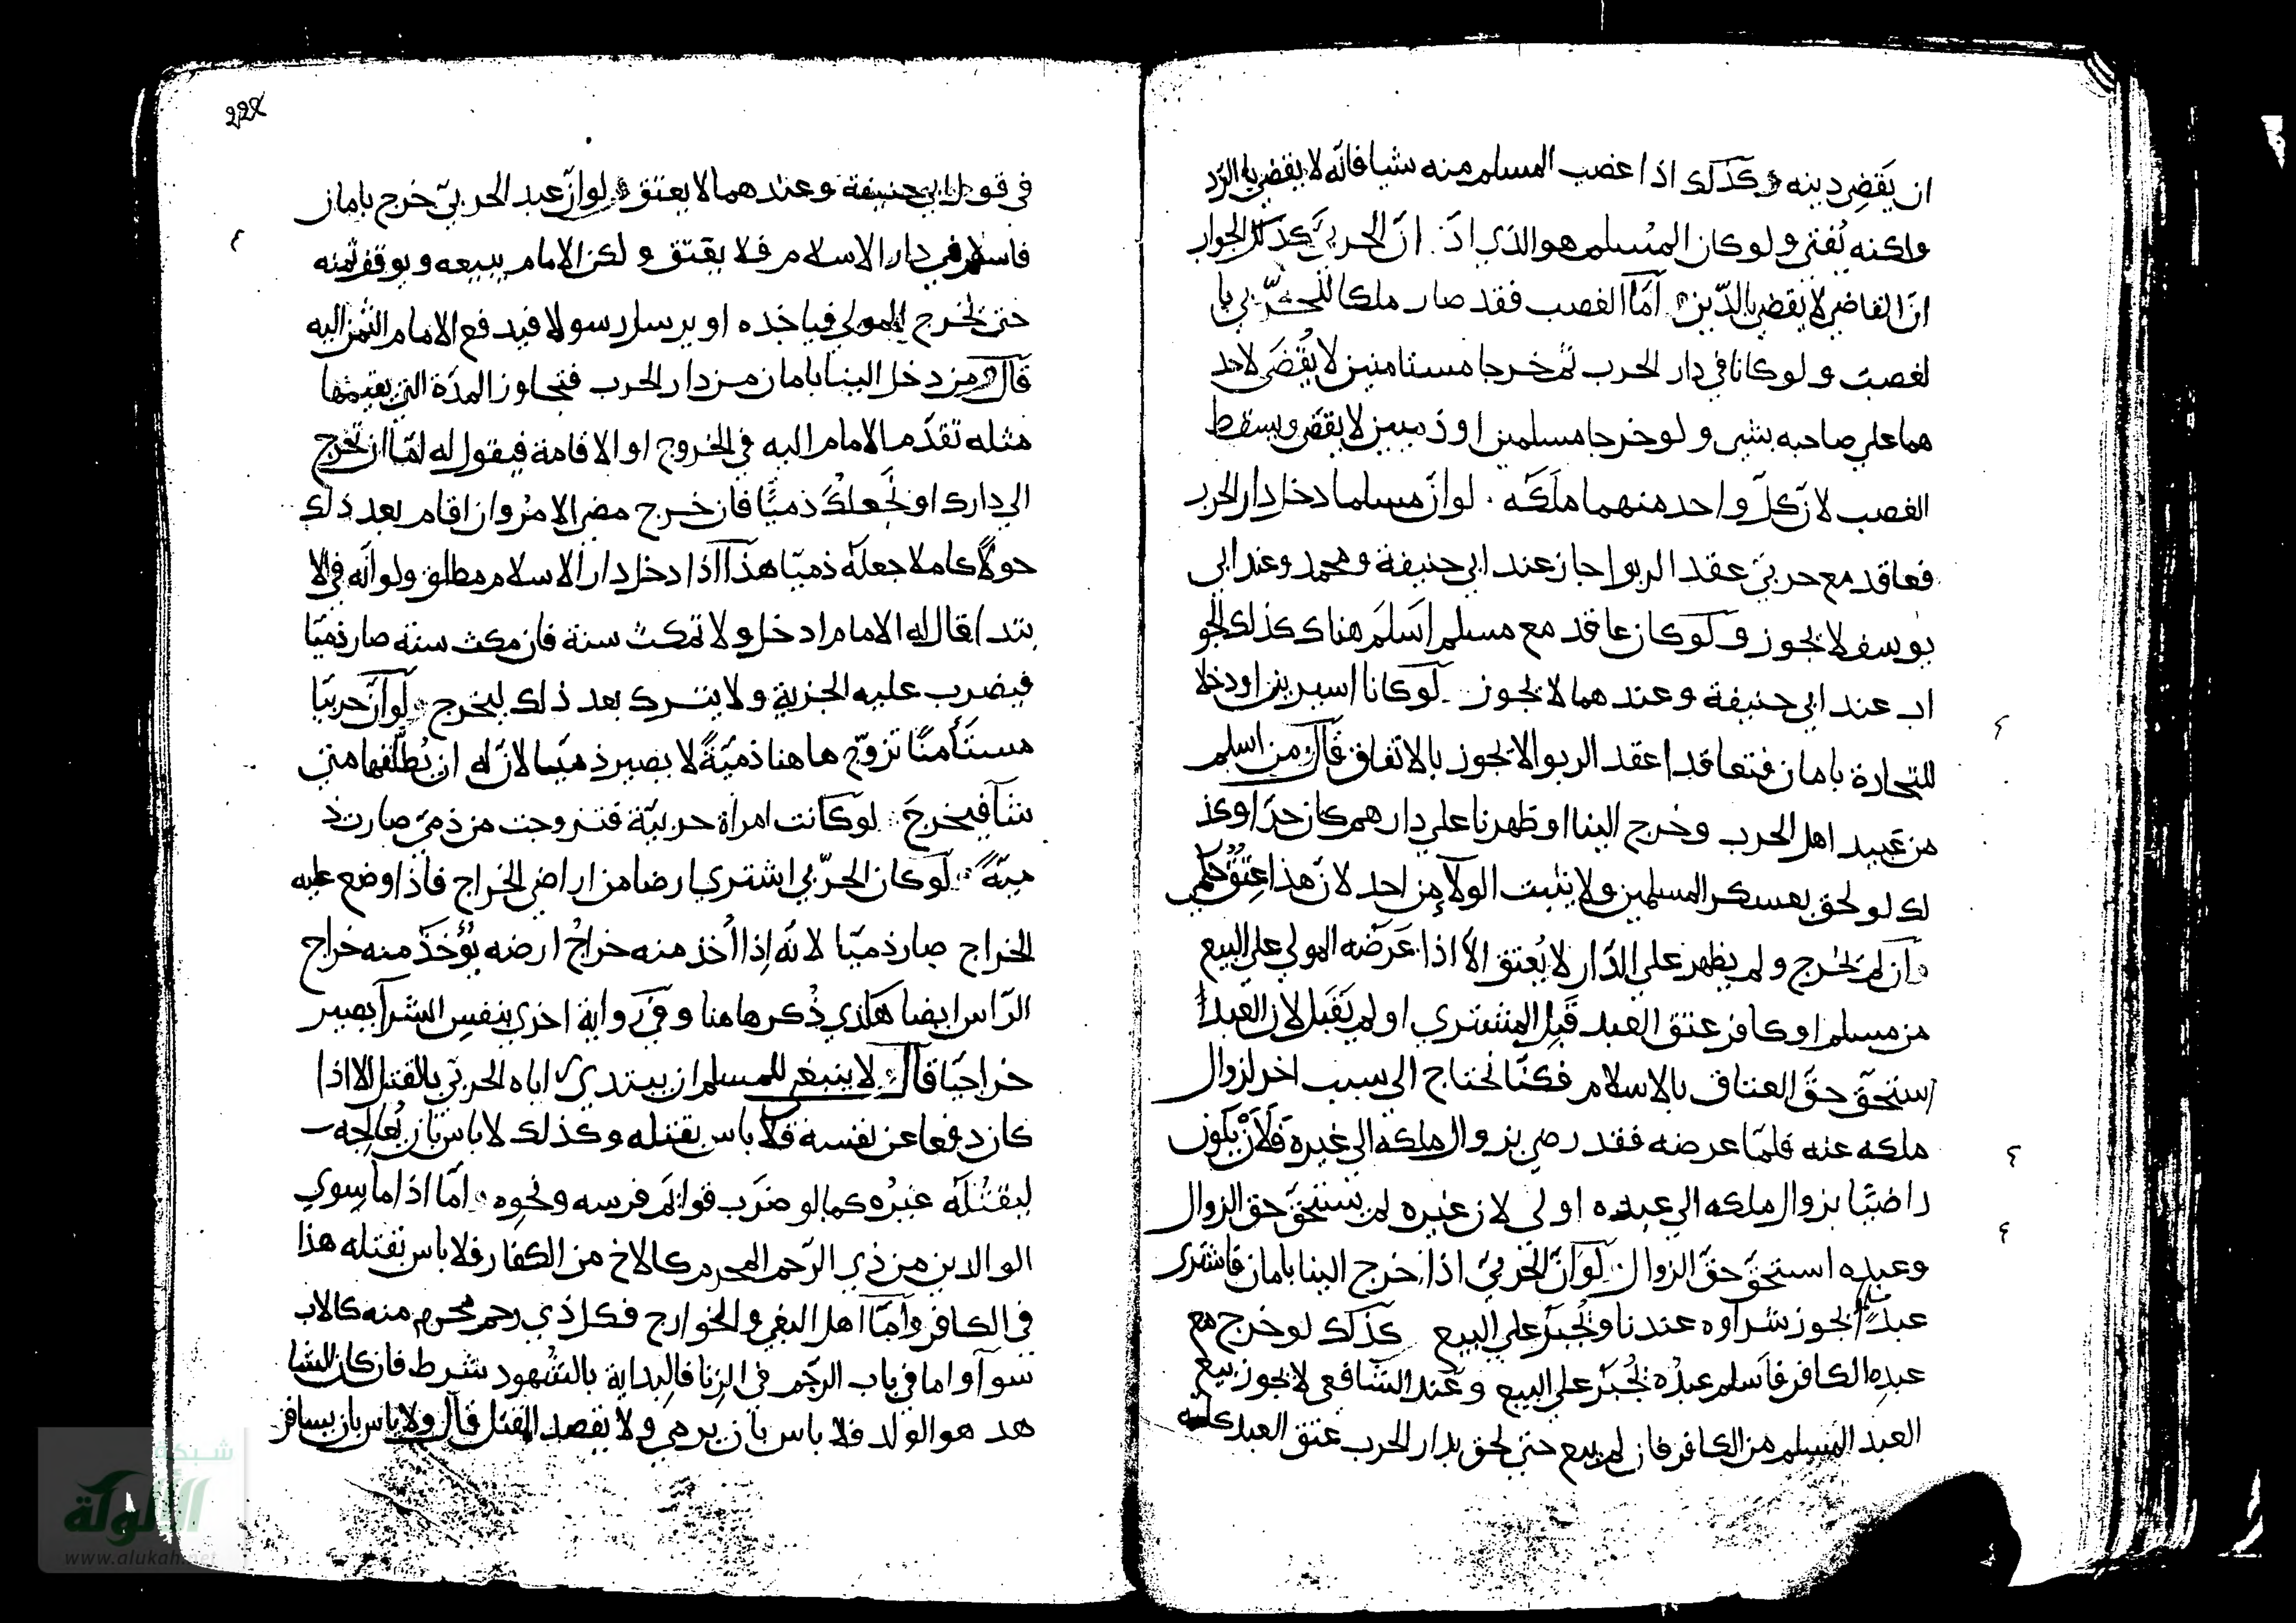 ان يَقضِي دينه وكذلك اذا غصب المسلم منه شيا فانّه لا يقضي بالرّد
ولكنه يُفتي ولو كان المسلم هو الذي ادَ ان الحربيَّ كذلك الجواب
انّ القاضي لا يقضي بالدّين امّا الغصب فقد صار ملكا للحربي با
لغصب ولو كانا في دار الحرب ثم خرجا مستامنين لا يُقضَى لاحد
هما علي صاحبه بشي ولو خرجا مسلمين او ذميين لا يقضي ويسقط
الغصب لانّ كلّ واحد منهما ملَكَه لو انّ مسلما دخل دار الحرب
فعاقد مع حربيّ عقد الربوا جاز عند ابي حنيفة ومحمد وعند ابي
يوسف لا يجوز ولو كان عاقد مع مسلم اَسلَمَ هناك كذلك الجو
اب عند ابي حنيفة وعندهما لا يجوز لو كانا اسيرين او دخلا
للتجارة بامان فتعاقدا عقد الربوا لا يجوز بالاتفاق قال ومن اسلم
من عَبيد اهل الحرب وخرج الينا او ظهرنا علي دارهم كان حرّا وكذ
لك لو لحق بعسكر المسلمين ولا يثبت الولآء من احد لانّ هذا عِتْقٌ حُكمي
وان لم يَخرج ولم يظهر علي الدّار لا يُعتق الّا اذا عَرَضه المولي علي البيع
من مسلم او كافر عتق العبد قَبِل المشتري او لم يَقبَل لانّ العبد
استحقّ حقَّ العتاق بالاسلام فكنّا نحتاج الي سبب اخر لزوال
ملكه عنه فلمّا عرضه فقد رضي بزوال ملكه الي غيره فَلَاَنْ يكون
راضيّا بزوال ملكه الي عبده اولي لان غيره لم يستحقّ حق الزوال
وعبده استحقّ حقَّ الزوال لو انّ الحربيّ اذا خرج الينا بامان فاشتري
عبدًا يجوز شراوه عندنا ويُجبَر علي البيع كذلك لو خرج مع
عبدِه الكافر فاَسلم عبدُه يُجبَر علي البيع وعند الشافعي لا يجوز بيع
العبد المسلم من الكافر فان لم يبيع حتي لحق بدار الحرب عتق العبد
228
في قول ابي حنيفة وعندهما لا يعتق ولو انّ عبد الحربيّ خرج بامان
فاسلم في دار الاسلام فلا يعتق ولكن الامام يبيعه ويوقف ثمنه
حتي يخرج المولي فياخذه او يرسل رسولا فيدفع الامام الثمن اليه
قال ومن دخل الينا بامان من دار الحرب فتجاوز المدّة التي يقيمها
مثله تقدّم الامام اليه في الخروج او الاقامة فيقول له امّا ان تخرج
الي دارك او نَجعلكَ ذميًّا فان خرج مضي الامرُ وان اقام بعد ذلك
حولًا كاملا جعله ذميّا هذا اذا دخل دار الاسلام مطلق ولو انّه في الا
بتدا قال له الامام ادخل ولا تمكث سنة فان مكث سنة صار ذميّا
فيضرب عليه الجزية ولا يترك بعد ذلك ليخرج لو انّ حربيّا
مستَأمنًا تزوّج هاهنا ذميّةً لا يصير ذميّا لانّ له ان يُطلّقها متي
شآ فيخرجَ لو كانت امراة حربيّة فتزوجت من ذمّي صارت ذ
ميّةً لو كان الحرّبي اشتري ارضا من اراضي الخراج فاذا وضع عليه
الخراج صار ذميّا لانّه اِذا اُخذ منه خراجُ ارضه يُؤخَذ منه خراج
الرّاس ايضا هكذي ذُكر هاهنا وفي رواية اخري بنفسِ الشرآ يصير
خراجيّا قال لا ينبغي للمسلم ان يبتدي اباه الحربيّ بالقتل الا اذا
كان دفعا عن نفسه فلا باس بقتله وكذلك لا باس بان يُعالجه
ليقتُلَه غيرُه كما لو ضرَب قوائم فرسه ونحوه امّا اذا ما سِوي
الوالدين من ذي الرّحم المحرم كالاخ من الكفار فلا باس بقتله هذا
في الكافر وامّا اهل البغي والخوارج فكل ذي رحم محرم منه كالاب
سوآ واما في باب الرجم في الزنا فالبداية بالشهود شرط فان كان الشا
هد هو الولد فلا باس بان يرمي ولا يقصد القتل قال ولا باس بان يسافر
شبكة
الألوكة
www.alukah.net